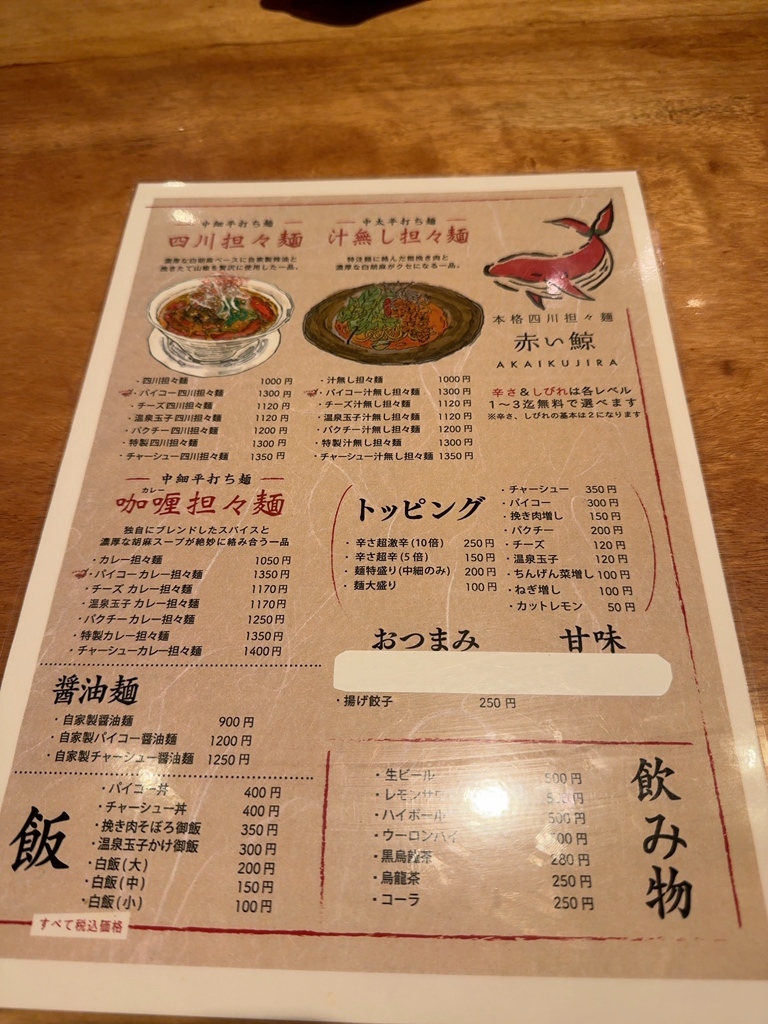 中細平打ち麺
四川担々麺
濃厚な白胡麻ベースに自家製辣油と
挽きたて山椒を贅沢に使用した一品。
・四川担々麺 1000円
・パイコー四川担々麺 1300円
・チーズ四川担々麺 1120円
・温泉玉子四川担々麺 1120円
・パクチー四川担々麺 1200円
・特製四川担々麺 1300円
・チャーシュー四川担々麺 1350円
中太平打ち麺
汁無し担々麺
特注麺に絡んだ粗挽き肉と
濃厚な白胡麻がクセになる一品。
・汁無し担々麺 1000円
・パイコー汁無し担々麺 1300円
・チーズ汁無し担々麺 1120円
・温泉玉子汁無し担々麺 1120円
・パクチー汁無し担々麺 1200円
・特製汁無し担々麺 1300円
・チャーシュー汁無し担々麺 1350円
本格四川担々麺
赤い鯨
AKAIKUJIRA
辛さ&しびれは各レベル
1~3迄無料で選べます
※辛さ、しびれの基本は2になります
中細平打ち麺
カレー
咖喱担々麺
独自にブレンドしたスパイスと
濃厚な胡麻スープが絶妙に絡み合う一品
・カレー担々麺 1050円
・パイコーカレー担々麺 1350円
・チーズ カレー担々麺 1170円
・温泉玉子 カレー担々麺 1170円
・パクチーカレー担々麺 1250円
・特製カレー担々麺 1350円
・チャーシューカレー担々麺 1400円
トッピング
・辛さ超激辛(10倍) 250円
・辛さ超辛(5倍) 150円
・麺特盛り(中細のみ) 200円
・麺大盛り 100円
・チャーシュー 350円
・パイコー 300円
・挽き肉増し 150円
・パクチー 200円
・チーズ 120円
・温泉玉子 120円
・ちんげん菜増し 100円
・ねぎ増し 100円
・カットレモン 50円
おつまみ 甘味
・揚げ餃子 250円
醤油麺
・自家製醤油麺 900円
・自家製パイコー醤油麺 1200円
・自家製チャーシュー醤油麺 1250円
飯
・パイコー丼 400円
・チャーシュー丼 400円
・挽き肉そぼろ御飯 350円
・温泉玉子かけ御飯 300円
・白飯(大) 200円
・白飯(中) 150円
・白飯(小) 100円
飲み物
・生ビール 500円
・レモンサワ
・ハイボール 500円
・ウーロンハイ
・黒烏龍茶 280円
・烏龍茶 250円
・コーラ 250円
すべて税込価格